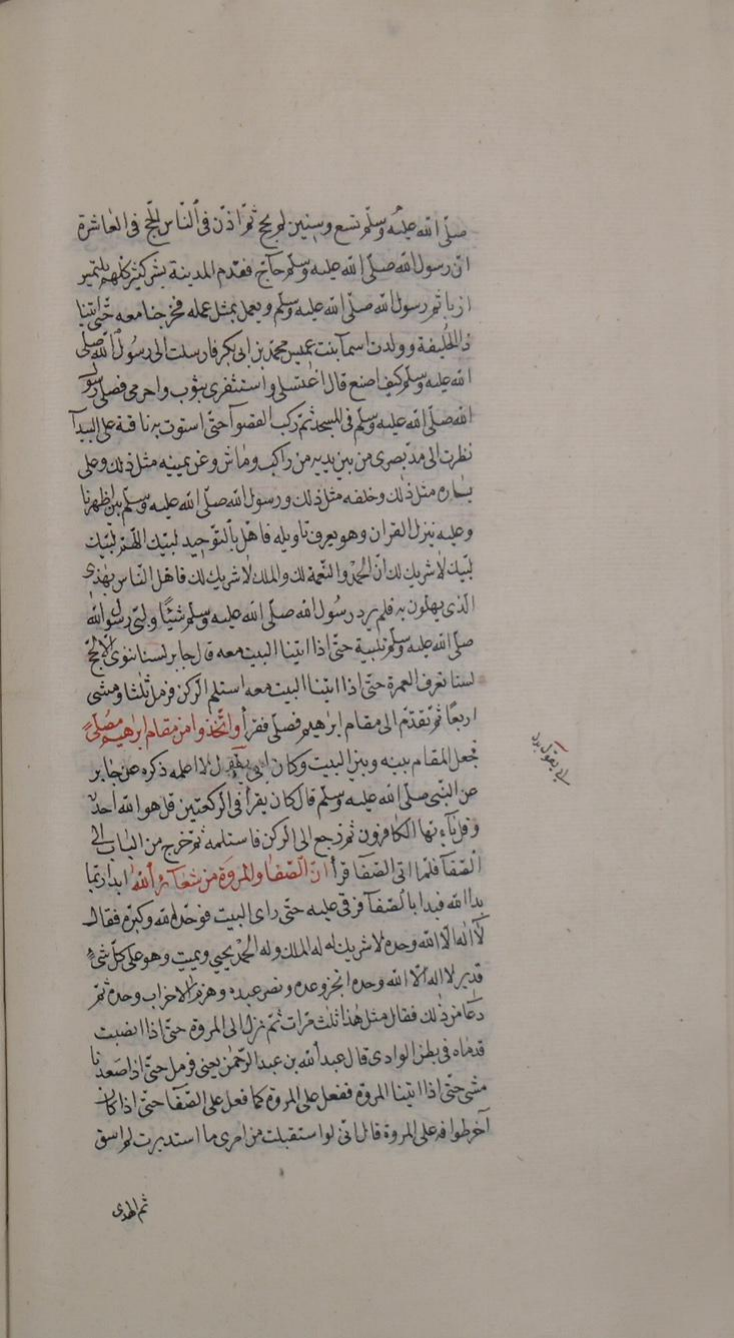 صلّى الله عليه وسلّم تسع وسنين لم يحج ثمّ اذّن فى النّاس للحج فى العاشرة
انّ رسول الله صلّى الله عليه وسلّم حاجّ فقدم المدينة بشر كثير كلهم يلتمس
ان ياتم رسول الله صلّى الله عليه وسلّم ويعمل بمثل عمله فخرجنا معه حتّى اتينا
ذا الحُليفة وولدت اسمآ بنت عميس محمد بن ابى بكر فارسلت الى رسُول الله صلى
الله عليه وسلّم كيف اصنع قال اغتسلى واستثفرى بثوب واحرمى فصلى رسول
الله صلّى الله عليه وسلّم فى المسجد ثمّ ركب القصوآ حتّى استوت به ناقة على البيدآ
نظرت الى مدّ بصرى من بين يديه من راكب وماش وعن يمينه مثل ذلك وعلى
يساره مثل ذلك وخلفه مثل ذلك ورسول الله صلّى الله عليه وسلّم بين اظهرنا
وعليه ينزل القرآن وهو يعرف تاويله فاهلّ بالتوحيد لبيك اللهمّ لبّيك
لبّيك لا شريك لك انّ الحمد والنّعمة لك والملك لا شريك لك فاهل النّاس بهذى
الّذى يهلون به فلم يرد رسُول الله صلّى الله عليه وسلّم شيئًا ولبّى رسول الله
صلّى الله عليه وسلّم تلبية حتّى اذا اتينا البيت معه قال جابر لسنا ننوى الّا الحجّ
لسنا نعرف العمرة حتّى اذا اتينا البيت معه استلم الركن فرمل ثلثا ومشى
اربعًا ثم تقدّم الى مقام ابراهيم فصلّى فقرأ واتّخذوا من مقام ابراهيم مصلّى
فجعل المقام بينه وبين البيت وكان ابى يقول لا اعلمه ذكره عن جابر
عن النّبى صلّى الله عليه وسلّم قال كان يقرأ فى الركعتين قل هو الله احد
وقل يآءيّها الكافرون ثمّ رجع الى الركن فاستلمه ثمّ خرج من الباب الى
الصّفآ فلما اتى الصّفا قرأ انّ الصّفا والمروة من شعآئر الله ابدأ بما
بدا الله فبدا بالصّفآ فرقى عليه حتّى راى البيت فوحّد الله وكبّره فقال
لآاله الّا الله وحده لا شريك له له الملك وله الحمد يحيى ويميت وهو على كلّ شئ
قدير لا اله الّا الله وحده انجز وعده ونصر عبده وهزم الاحزاب وحده ثمّ
دعا من ذلك فقال مثل هذا ثلث مرّات ثمّ نزل الى المروة حتّى اذا انصبت
قدماه فى بطن الوادى قال عبد الله بن عبد الرّحمن يعنى فرمل حتّى اذا صعدنا
مشى حتّى اذا اتينا المروة ففعل على المروة كما فعل على الصّفا حتّى اذا كان
آخر طوافه على المروة قال انّى لو استقبلت من امرى ما استدبرت لم اسق
ثم الهدى